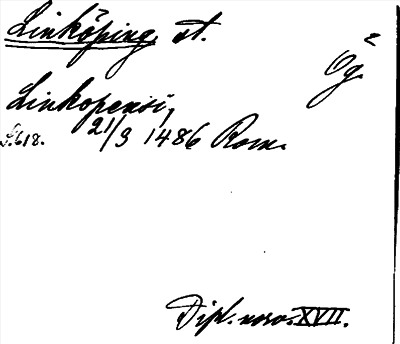 Linköping, st.
Ög.
Linkopensi,
S. 618. 21/3 1486 Rom.
Dipl. norv. XVII.